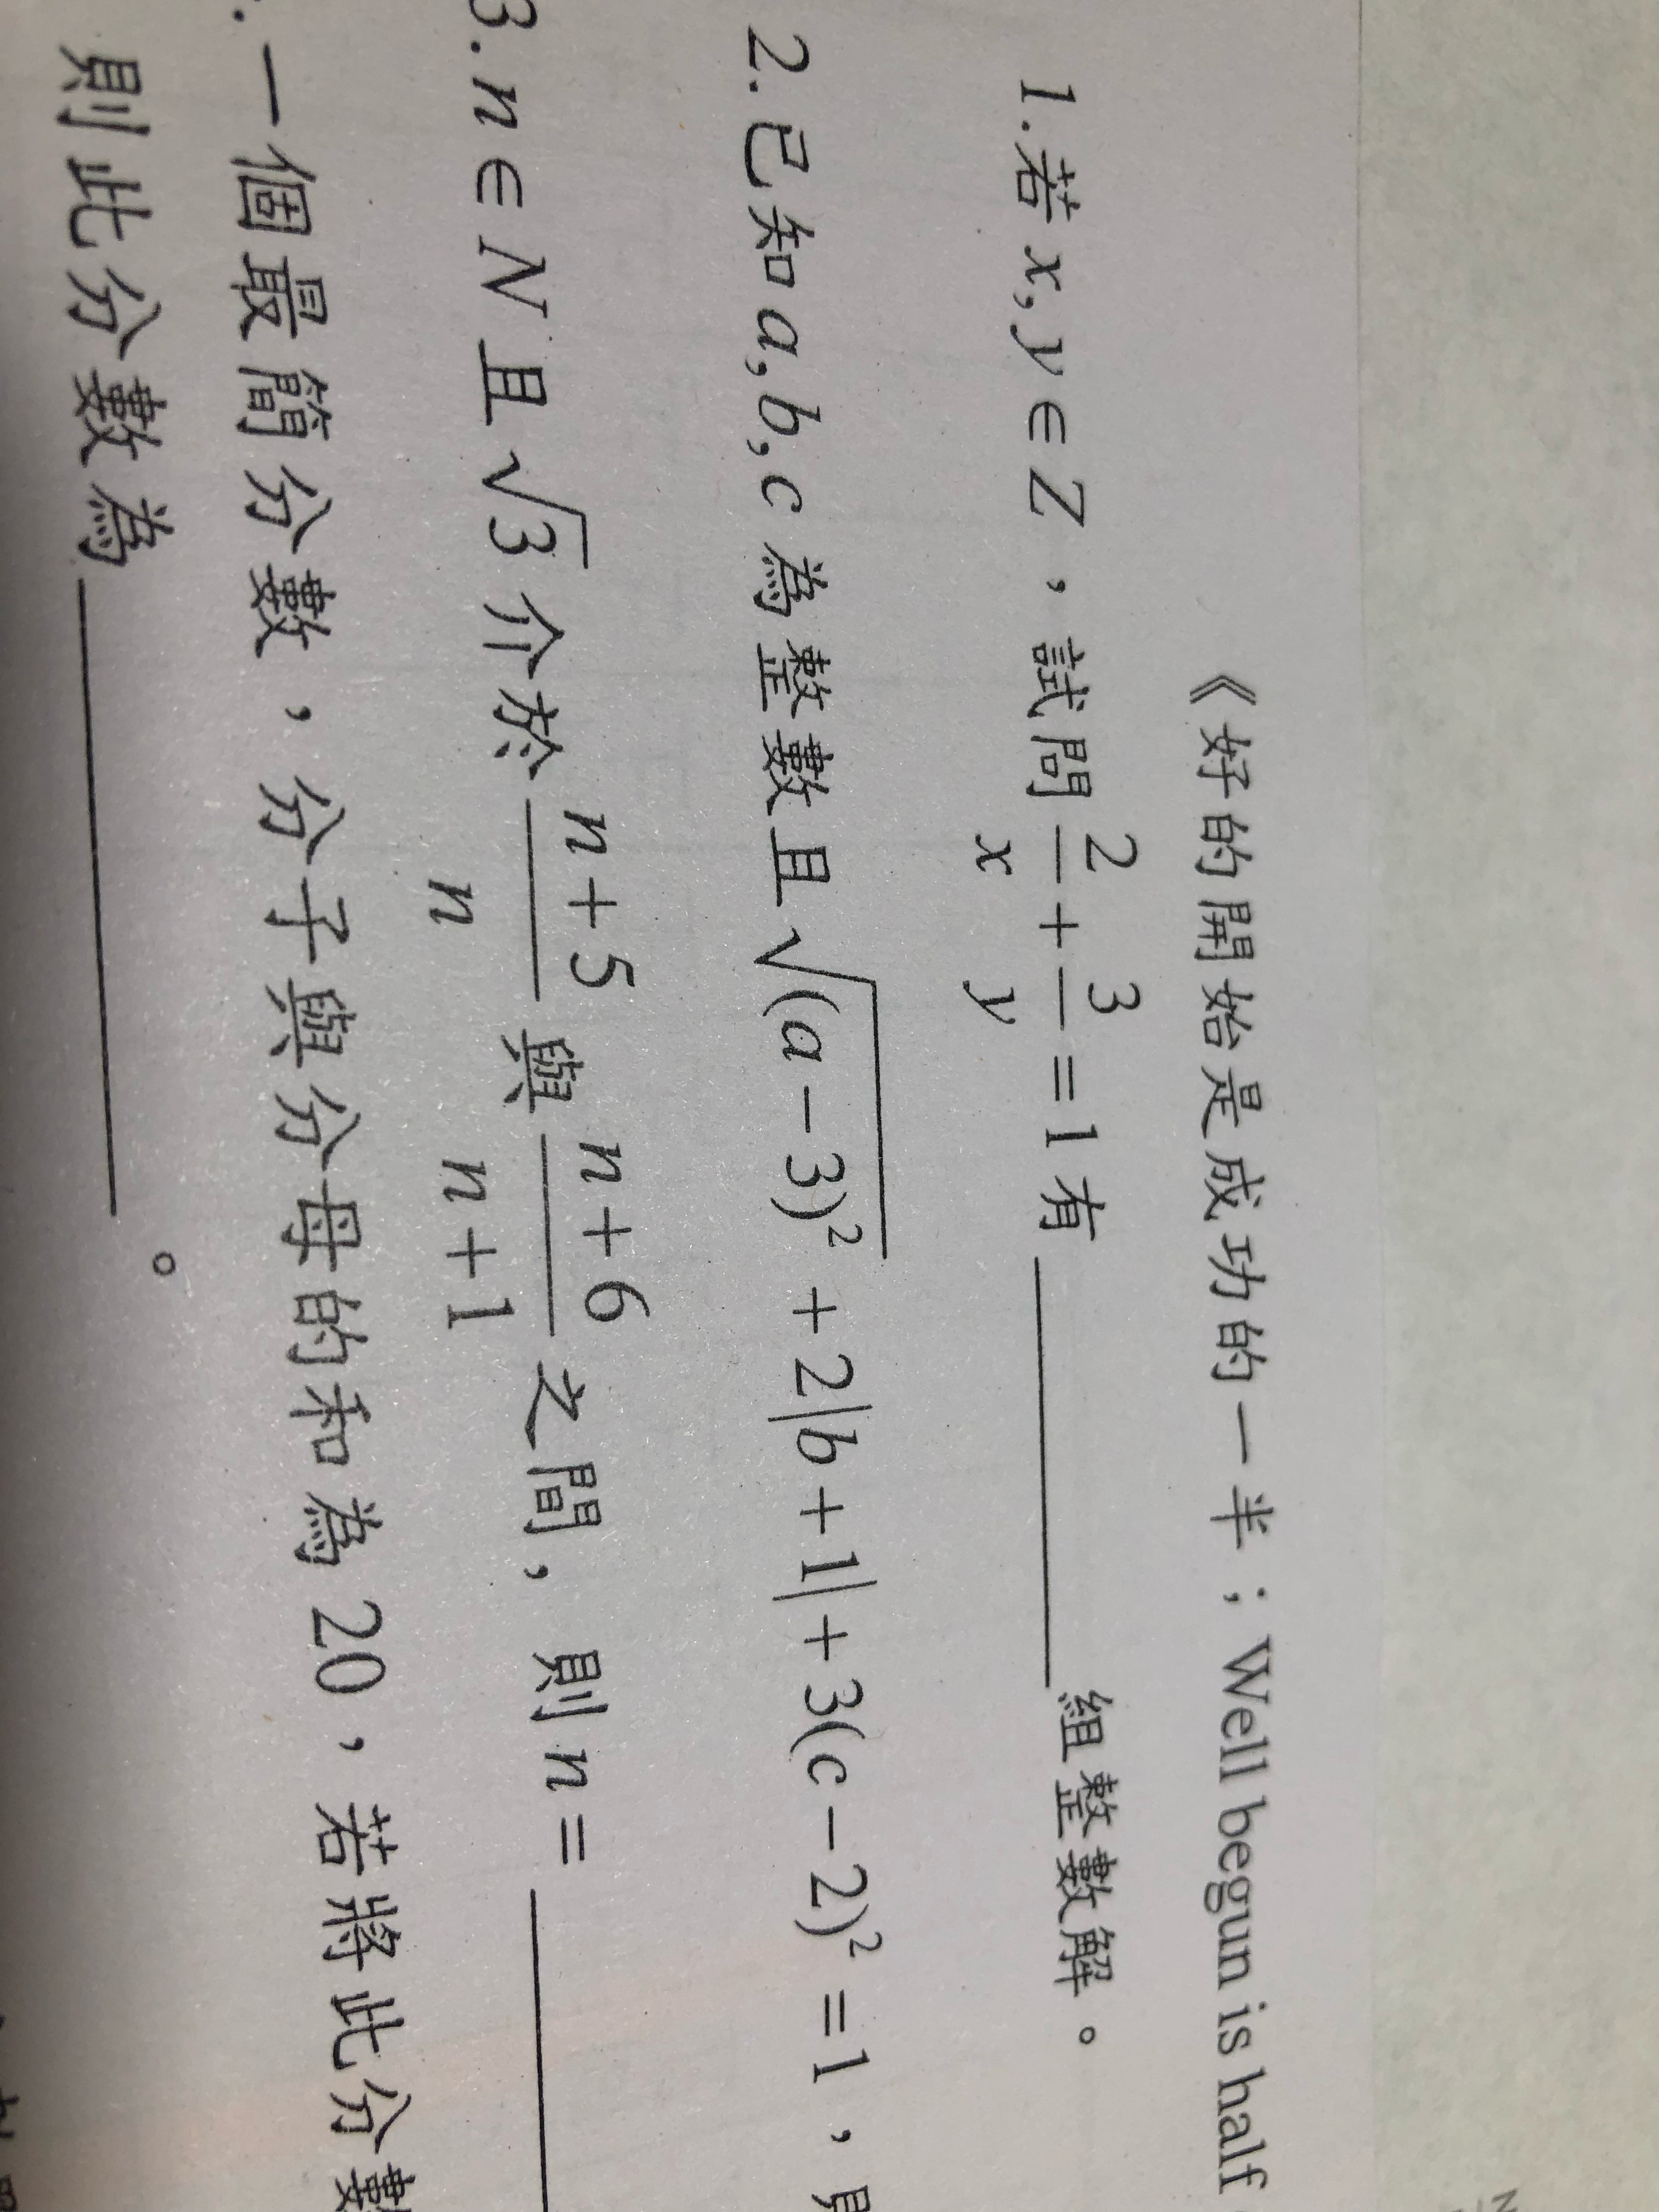 《好的開始是成功的一半；Well begun is half
1.若 x, y ∈ Z，試問 2/x + 3/y = 1 有________組整數解。
2.已知 a, b, c 為整數且 √(a−3)² + 2|b+1| + 3(c−2)² = 1，
3. n ∈ N 且 √3 介於 (n+5)/n 與 (n+6)/(n+1) 之間，則 n = ________
.一個最簡分數，分子與分母的和為 20，若將此分數
則此分數為________。